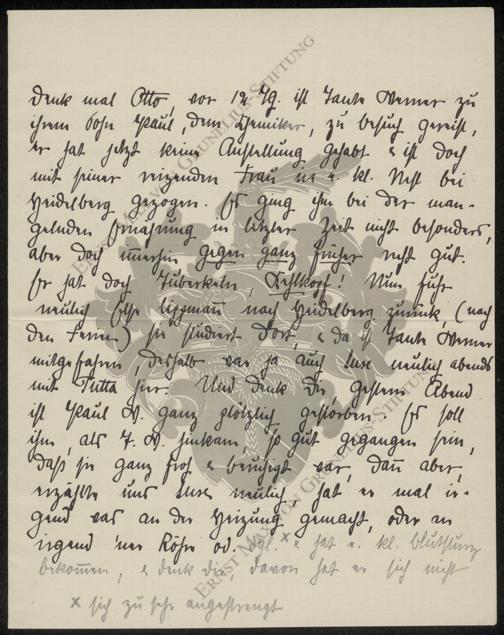 Denk mal Otto, vor 12 Tg. ist Tante Werner zu
ihrem Sohn Paul, dem Chemiker, zu Besuch gereist,
er hat jetzt keine Anstellung gehabt & ist doch
mit seiner reizenden Frau in e. kl. Nest bei
Heidelberg gezogen. Es ging ihm bei der man-
gelnden Ernährung in letzter Zeit nicht besonders,
aber doch immerhin gegen ganz früher recht gut.
Er hat doch Tuberkeln, Kehlkopf! Nun fuhr
neulich Lippmann nach Heidelberg zurück, (nach
den Ferien) sie studiert dort, & da ist Tante Werner
mitgefahren, deshalb war ja auch neulich abends
mit Jutta hier. Und denk Dir, gestern Abend
ist Paul W. ganz plötzlich gestorben. Es soll
ihm, als T. W. hinkam so gut gegangen sein,
daß sie ganz froh & beruhigt war, dann aber,
erzählte uns neulich, hat er mal ir-
gend was an der Heizung gemacht, oder an
irgend 'ner Röhre od. x & hat e. kl. Blutsturz
bekommen, & denk dir, davon hat er sich nicht
x sich zu sehr angestrengt
ERNST MAX VON GRUNELIUS-STIFTUNG
ERNST MAX VON GRUNELIUS-STIFTUNG